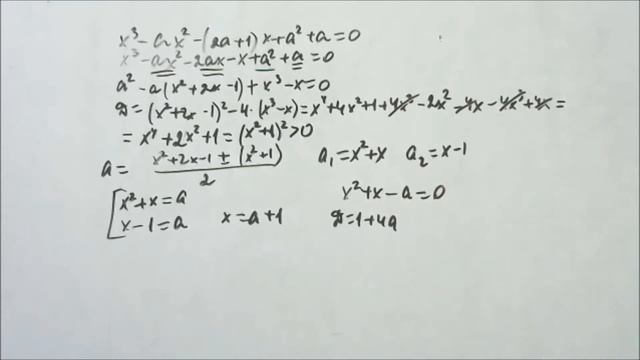 x³-ax²-(2a+1)x+a²+a=0
x³-ax²-2ax-x+a²+a=0
a²-a(x²+2x-1)+x³-x=0
D=(x²+2x-1)²-4·(x³-x)=x⁴+4x²+1+4x³-2x²-4x-4x³+4x=
=x⁴+2x²+1=(x²+1)²>0
a= x²+2x-1±(x²+1) / 2 a₁=x²+x a₂=x-1
[x²+x=a x²+x-a=0
x-1=a x=a+1 D=1+4a